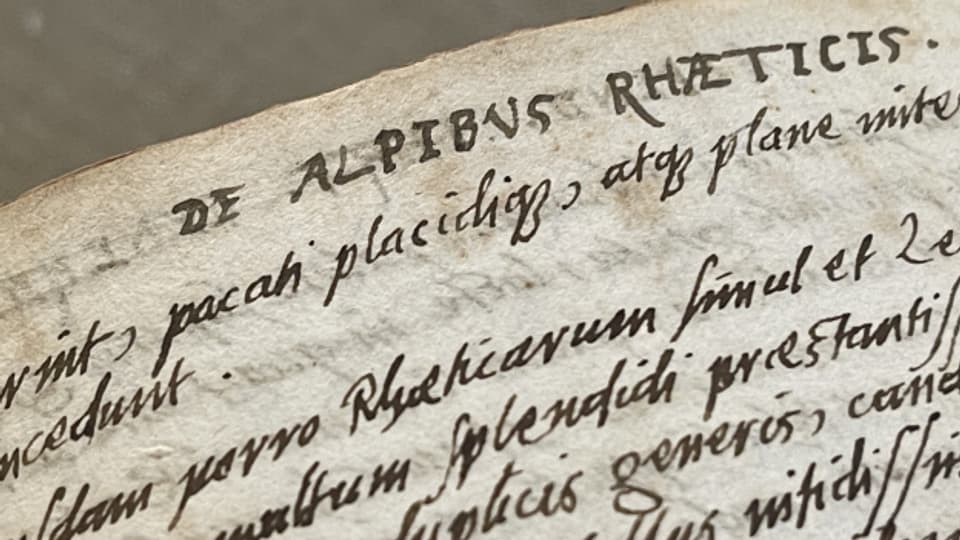 DE ALPIBVS RHÆTICIS.
pacati placidiq;, atq; plane mite
ncedunt.
porro Rhæticarum ſimul et Le
multum ſplendidi præstantiſſ
duplicis generis, cand
nitidiſſim